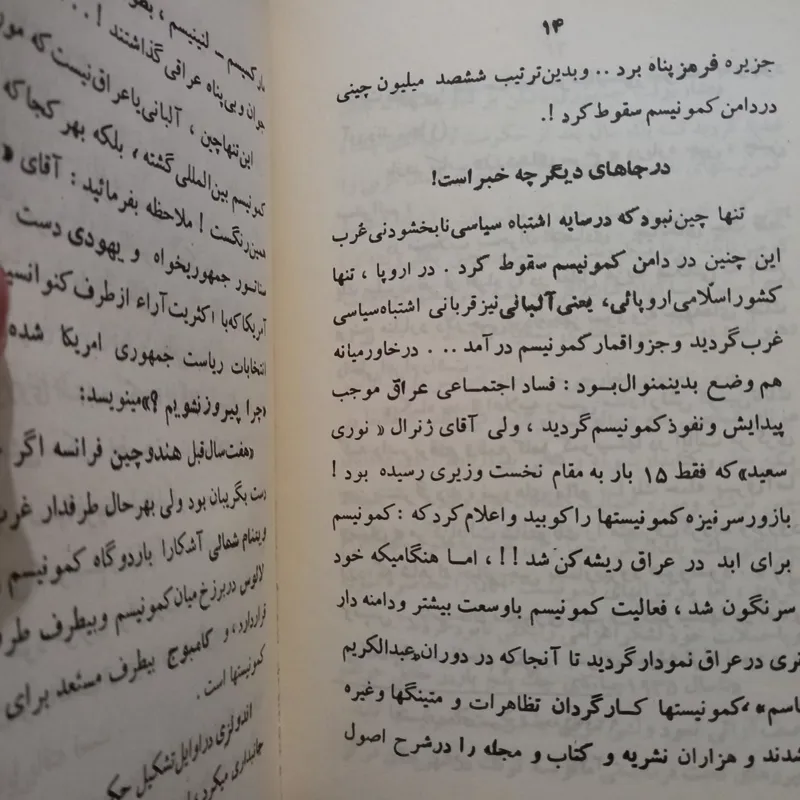 ۱۴
جزیره فرمز پناه برد .. و بدین ترتیب ششصد میلیون چینی
در دامن کمونیسم سقوط کرد !.
در جاهای دیگر چه خبر است!
تنها چین نبود که در سایه اشتباه سیاسی نابخشودنی غرب
این چنین در دامن کمونیسم سقوط کرد . در اروپا ، تنها
کشور اسلامی اروپائی، یعنی آلبانی نیز قربانی اشتباه سیاسی
غرب گردید و جزو اقمار کمونیسم در آمد .. . در خاورمیانه
هم وضع بدینمنوال بود : فساد اجتماعی عراق موجب
پیدایش و نفوذ کمونیسم گردید ، ولی آقای ژنرال « نوری
سعید» که فقط ۱۵ بار به مقام نخست وزیری رسیده بود !
بازور سر نیزه کمونیستها را کوبید و اعلام کرد که : کمونیسم
برای ابد در عراق ریشه کن شد !! ، اما هنگامیکه خود
سرنگون شد ، فعالیت کمونیسم باوسعت بیشتر و دامنه دار
تری در عراق نمودار گردید تا آنجا که در دوران «عبدالکریم
قاسم» ، کمونیستها کارگردان تظاهرات و متینگها وغیره
شدند و هزاران نشریه و کتاب و مجله را در شرح اصول
مارکسیسم - لنینیسم ،
جوان و بی پناه عراقی گذاشتند ! . .
این تنها چین ، آلبانی یا عراق نیست که
کمونیسم بین المللی گشته ، بلکه بهر کجا که
همین رنگست ! ملاحظه بفرمائید : آقای «
سناتور جمهوریخواه و یهودی دست
آمریکا که با اکثریت آراء از طرف
انتخابات ریاست جمهوری امریکا شده
«چرا پیروز نشویم ؟» مینویسد:
«هفت سال قبل هندوچین فرانسه اگر
دست بگریبان بود ولی بهر حال طرفدار
ویتنام شمالی آشکارا باردوگاه کمونیسم
لائوس در برزخ میان کمونیسم و بیطرف
قرار دارد ، و کامبوج بیطرف مستعد برای
کمونیستها است .
اندونزی در اوایل تشکیل
جانبداری میکرد ،